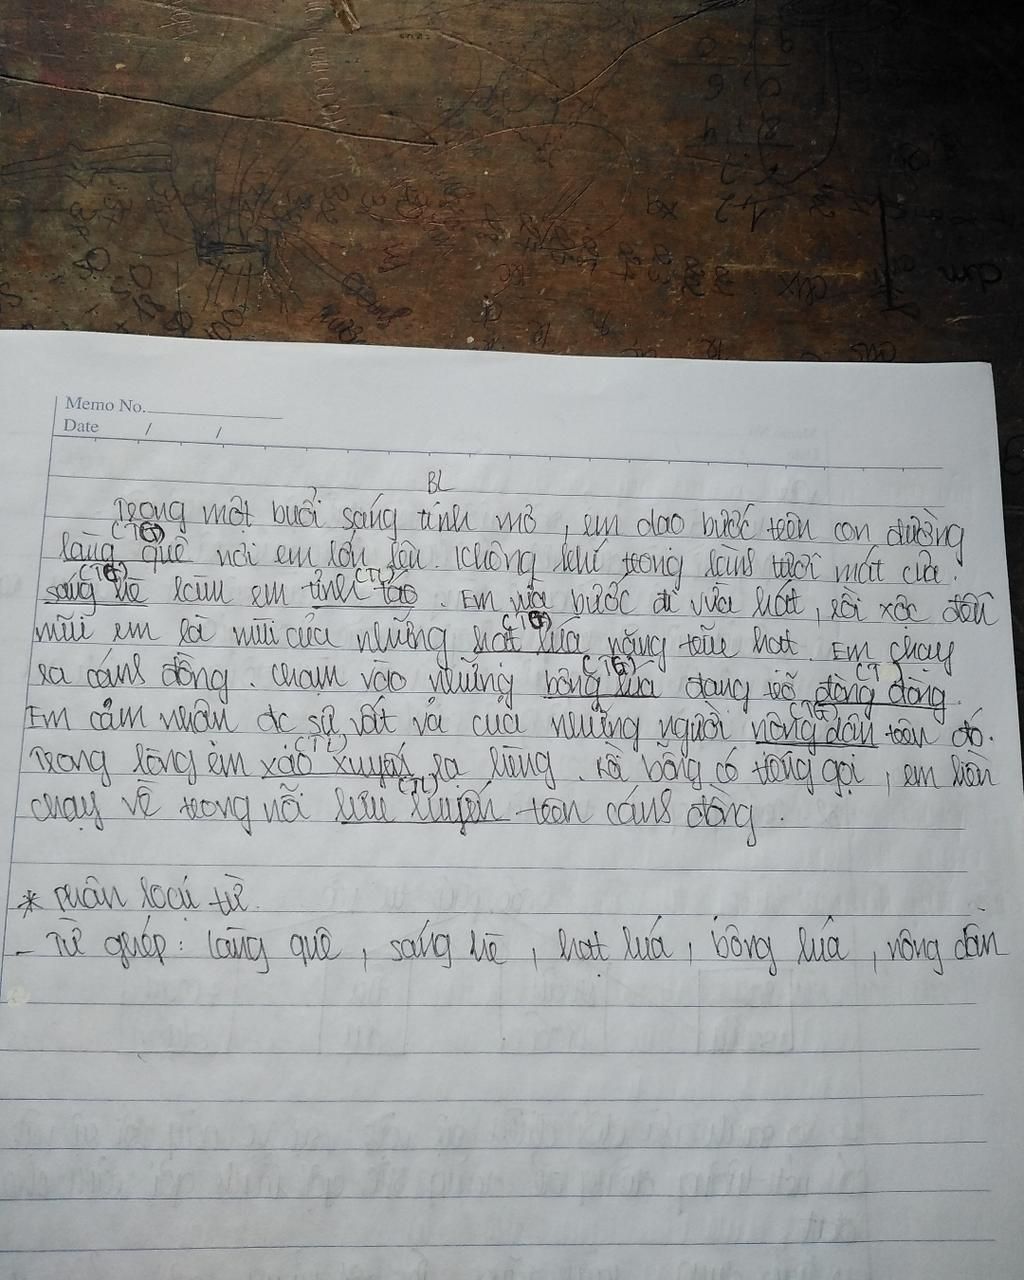 Memo No.
Date / /
BL
Trong một buổi sáng tinh mơ, em dạo bước trên con đường
(TG)
làng quê nơi em lớn lên. Không khí trong lành tươi mát của
(TG) (TL)
sáng hè làm em tỉnh táo. Em vừa bước đi vừa hát, rồi xộc đến
(TG)
mũi em là mùi của những hạt lúa nặng trĩu hạt. Em chạy
(TG) (T
ra cánh đồng. Chạm vào những bông lúa đang trổ đòng đòng.
(TG)
Em cảm nhận đc sự vất vả của những người nông dân trên đó.
(TL)
Trong lòng em xao xuyến lạ lùng. Rồi bỗng có tiếng gọi, em liền
(TL)
chạy về trong nỗi lưu luyến trên cánh đồng.
* Phân loại từ
- Từ ghép: làng quê, sáng hè, hạt lúa, bông lúa, nông dân